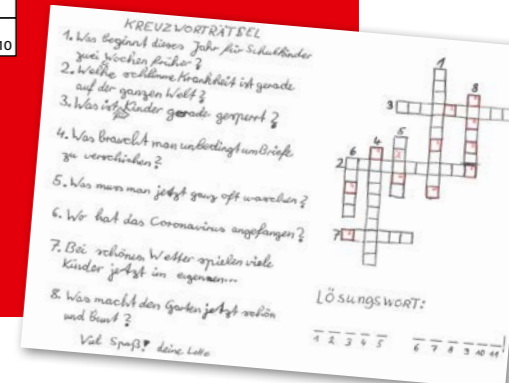 10
KREUZWORTRÄTSEL
1. Was beginnt dieses Jahr für Schulkinder
zwei Wochen früher?
2. Welche schlimme Krankheit ist gerade
auf der ganzen Welt?
3. Was ist für Kinder gerade gesperrt?
4. Was braucht man unbedingt um Briefe
zu verschicken?
5. Was muss man jetzt ganz oft waschen?
6. Wo hat das Coronavirus angefangen?
7. Bei schönem Wetter spielen viele
Kinder jetzt im eigenen...
8. Was macht den Garten jetzt schön
und Bunt?
Viel Spaß! deine Lotta
1
8
3
4
5
6
2
7
LÖSUNGSWORT:
1 2 3 4 5 6 7 8 9 10 11